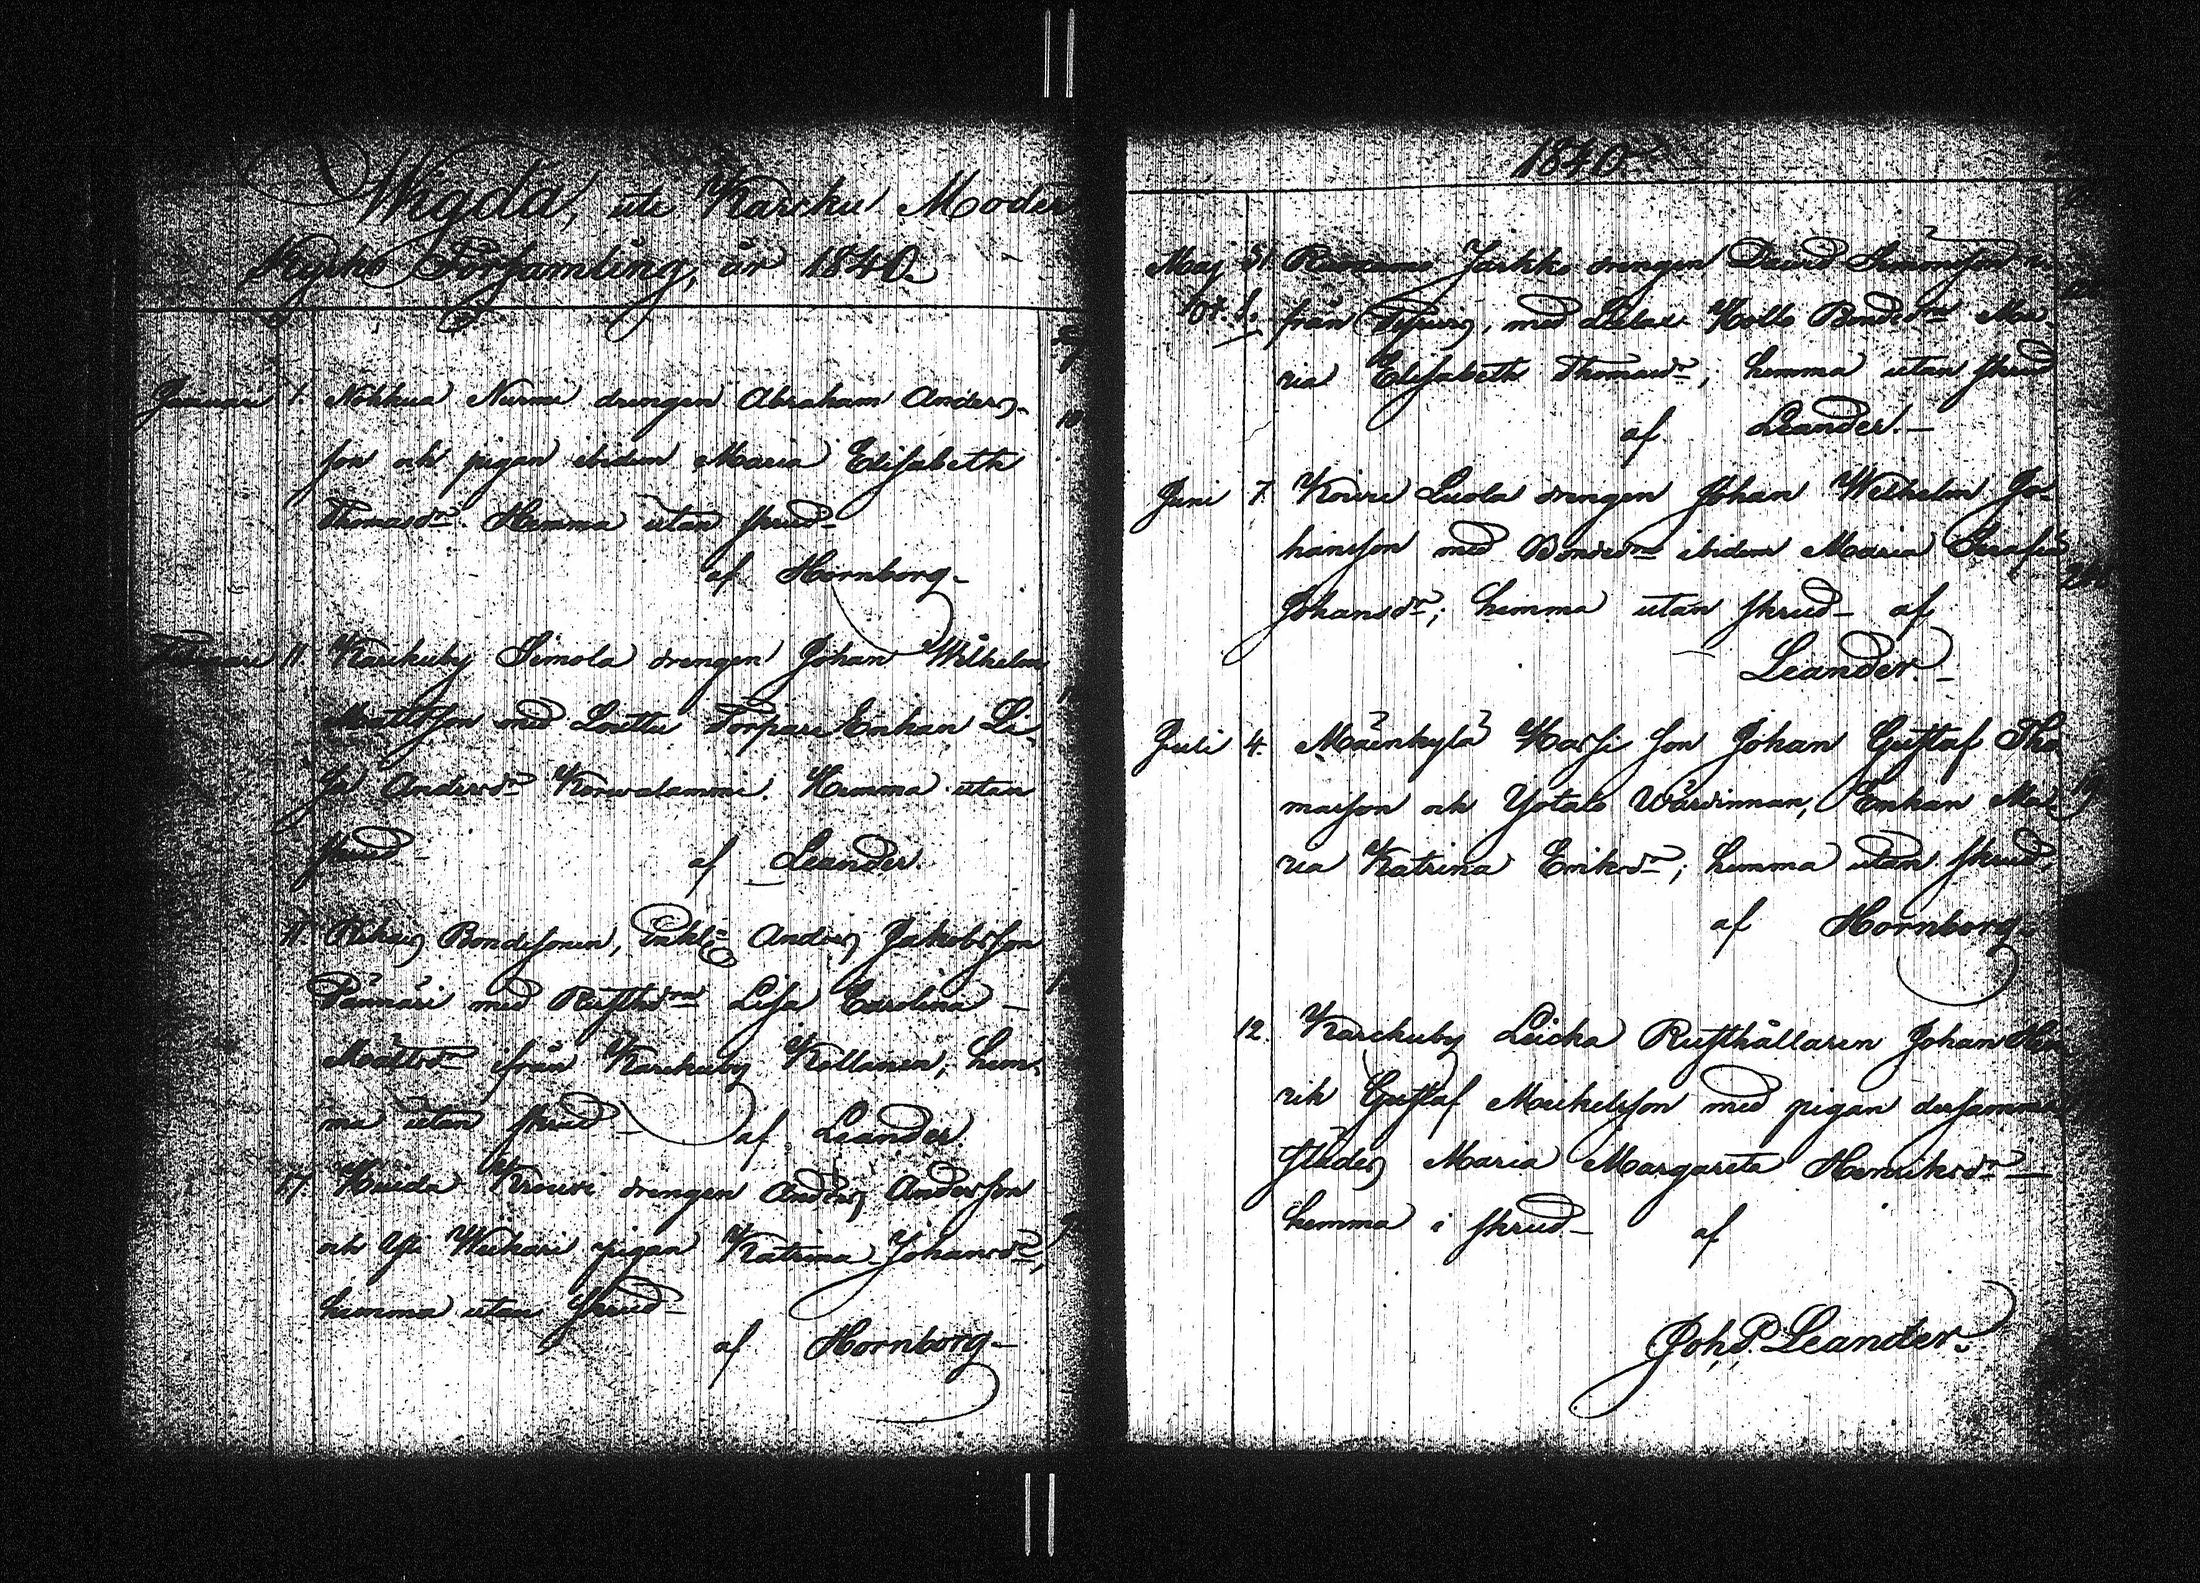 Wigda, uti Karcku Moder
Kyrko Församling, år 1840
Januari 1. Nohkua Nurmi drengen Abraham Anders-
son och pigan ibidem Maria Elisabeth
Thomasdr. Hemma utan skrud-
af Hornborg-
Februari 11 Karckuby Simola drengen Johan Wilhelm
Mattsson med Torpare Enkan Li-
sa Andersdr Korwalammi. Hemma utan
skrud- af Leander.
11 Bondesonen, Enkl. Anders Jakobsson
med Rusthdren Lisa Carolina -
Mattsdr från Karckuby Kollanen, hem-
ma utan skrud- af Leander
drengen Anders Andersson
och Yli pigan Katrina Johansdr,
hemma utan skrud-
af Hornborg-
1840
Maj 31 drengen David Simonsson
från med Kollo Bondedren Ma-
ria Elisabeth Thomasdr; hemma utan skrud
af Leander.-
Juni 7. Luola drengen Johan Wilhelm Jo-
hansson med Bondedren ibidem Maria Serafia
Johansdr; hemma utan skrud- af
Leander.-
Juli 4. son Johan Gustaf Tho
masson och Wärdinnan, Enkan Ma-
ria Katrina Eriksdr; hemma utan skrud,
af Hornborg-
12. Karckuby Rusthållaren Johan Hen
rik Gustaf Mickelsson med pigan dersamma
städes Maria Margareta Henriksdr-
hemma i skrud- af
Joh. P. Leander.